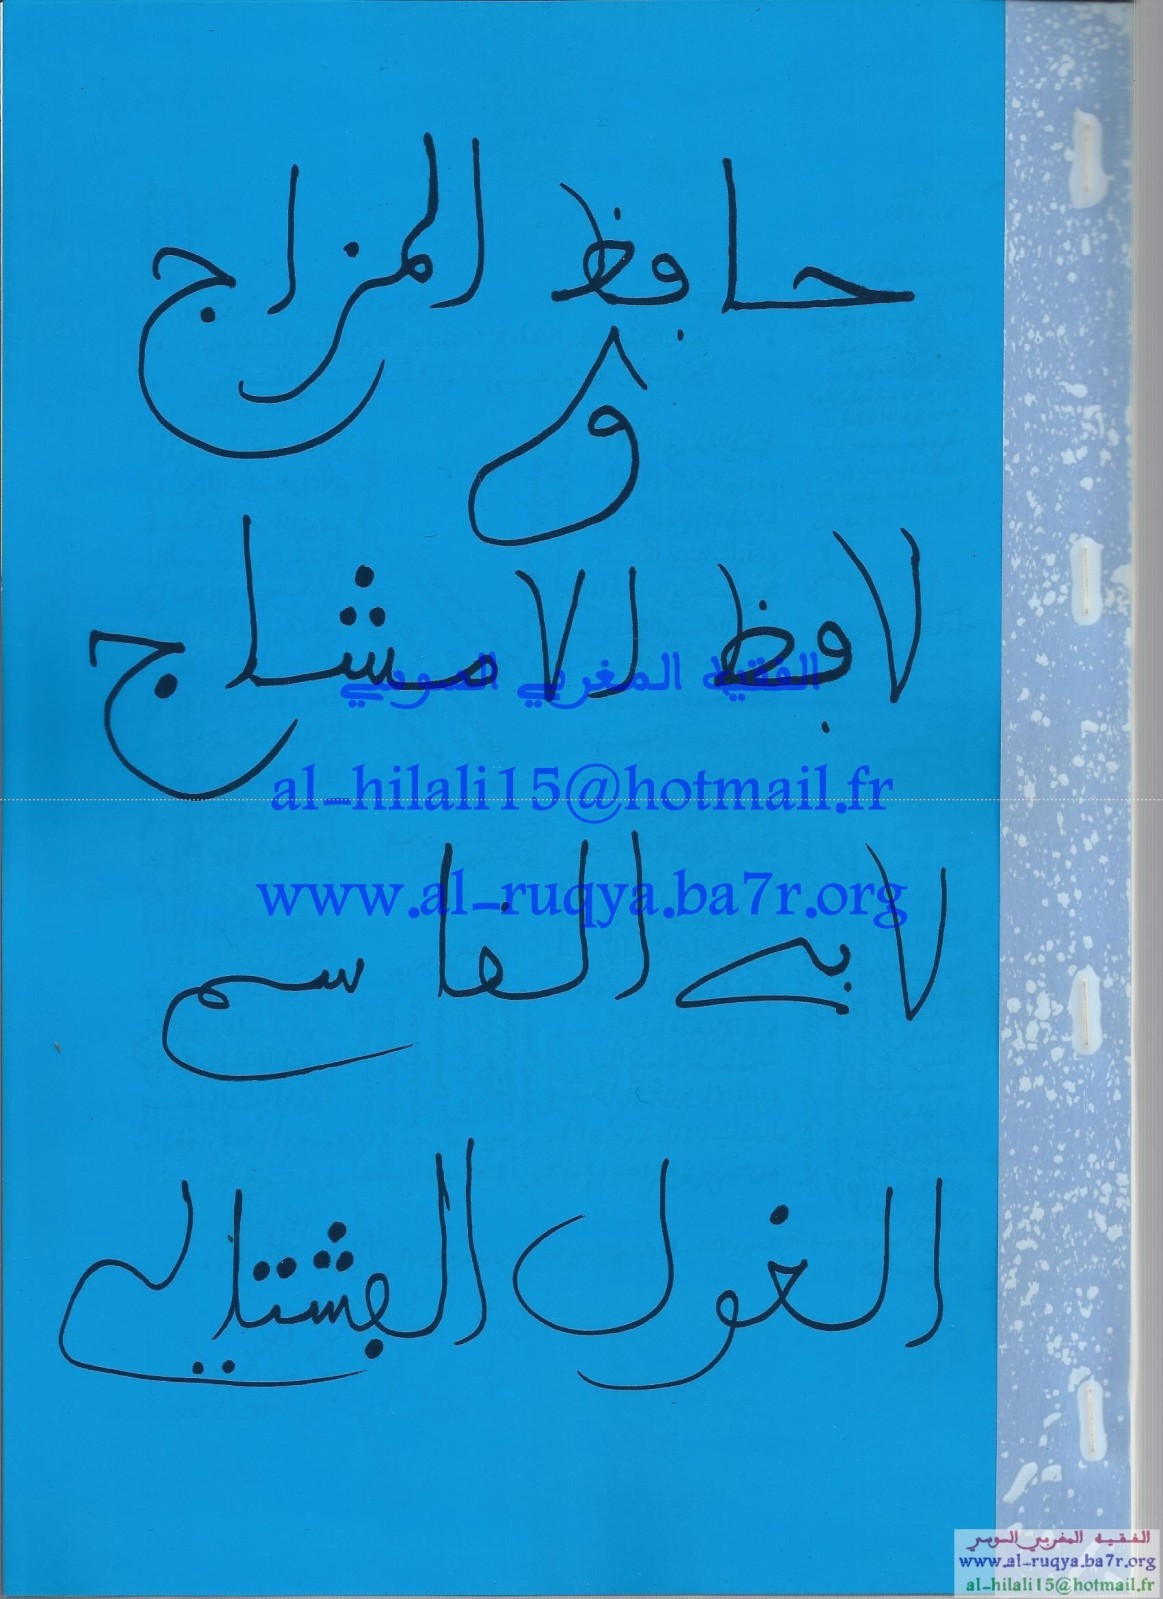 حافظ المزاج
و
لافظ الامشاج
الفقيه المغربي السوسي
al-hilali15@hotmail.fr
www.al-ruqya.ba7r.org
لابي القاسم
الغول الفشتالي
الفقيه المغربي السوسي
www.al-ruqya.ba7r.org
al-hilali15@hotmail.fr